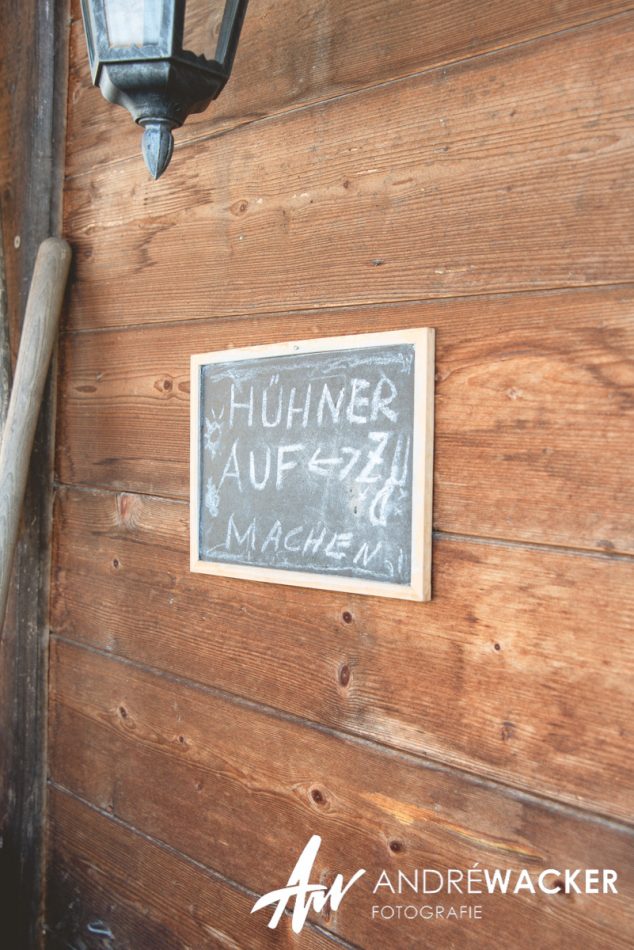 HÜHNER
AUF ↔ ZU
MACHEN!
ANDRÉWACKER
FOTOGRAFIE